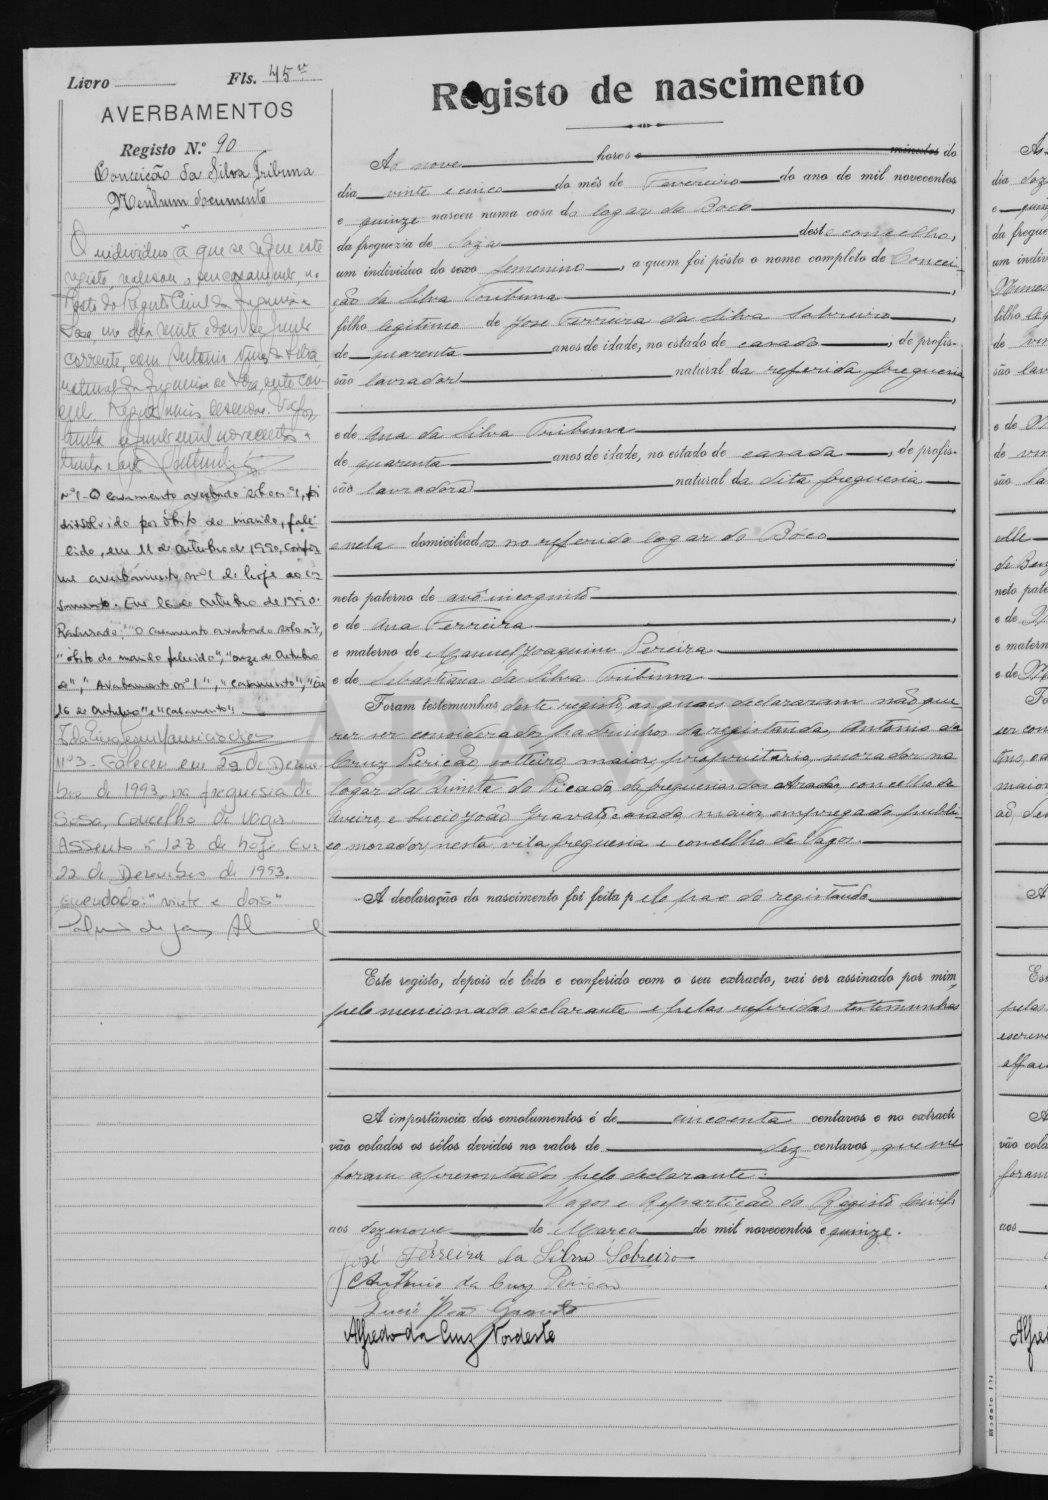 Livro Fls. 45v
AVERBAMENTOS
Registo N.º 90
Conceição da Silva Tribuna
Nenhum documento
O individuo a que se refere este
registo, realisou o seu casamento no
Posto do Registo Civil da freguesia
Soza, no dia vinte e dois de Junho
corrente, com Antonio da Silva
natural da freguesia de este con-
celho. Registo numero Vagos,
trinta de Junho de mil novecentos e
trinta e
Nº1 - O casamento averbado sob o nº1, foi
dissolvido por óbito do marido, fale-
cido, em 11 de Outubro de 1990, confor-
me averbamento nº1 de hoje ao ca-
samento. Em 16 de Outubro de 1990.
Rasurado: "O casamento averbado sob o nº1",
"óbito do marido falecido", "onze de Outubro
de", "Averbamento nº1", "casamento", "Em
16 de Outubro" e "casamento".
Nº3 - Faleceu em 22 de Dezem-
bro de 1993, na freguesia de
Sosa, Concelho de Vagos
Assento nº 128 de hoje Em
22 de Dezembro de 1993.
emendado: "vinte e dois"
Registo de nascimento
Ás nove horas e minutos do
dia vinte e cinco do mês de Fevereiro do ano de mil novecentos
e quinze nasceu numa casa do logar do Boco,
da freguezia de Soza deste concelho,
um individuo do sexo femenino, a quem foi pôsto o nome completo de Concei-
ção da Silva Tribuna,
filho legitimo de José Ferreira da Silva Sobreiro,
de quarenta anos de idade, no estado de casado, de profis-
são lavrador natural da referida freguesia,
e de Ana da Silva Tribuna,
de quarenta anos de idade, no estado de casada, de profis-
são lavradora natural da dita freguesia
e nela domiciliados no referido logar do Bóco
neto paterno de avô incognito
e de Ana Ferreira
e materno de Manuel Joaquim Pereira
e de Sebastiana da Silva Tribuna
Foram testemunhas deste registo, as quais declararam não que-
rer ser considerados padrinhos da registanda, Antonio da
Cruz Pericão, solteiro, maior, proprietario, morador no
logar da Quinta do Picado, da freguesia das Aradas, concelho de
Aveiro, e Lucio João Gravato, casado, maior, empregado publi-
co, morador, nesta vila freguesia e concelho de Vagos.
A declaração do nascimento foi feita pelo pae do registando
Este registo, depois de lido e conferido com o seu extracto, vai ser assinado por mim,
pelo mencionado declarante e pelas referidas testemunhas
A importância dos emolumentos é de cincoenta centavos e no extracto
vão colados os sêlos devidos no valor de dez centavos, que me
foram apresentados pelo declarante.
Vagos e Repartição do Registo Civil,
aos dezenove de Março de mil novecentos e quinze.
José Ferreira da Silva Sobreiro
Antonio da Cruz Pericão
Lucio João Gravato
Alfredo da Cruz Nordeste
ADAVR